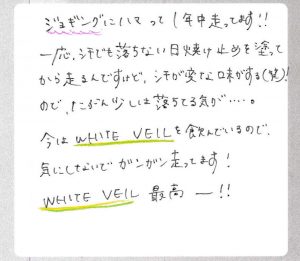 ジョギングにハマって1年中走ってます!!
一応、汗でも落ちない日焼け止めを塗って
から走るんですけど、汗が変な味がする(笑)!
ので、たぶん少しは落ちてる気が・・・・。
今はWHITE VEILを飲んでいるので、
気にしないでガンガン走ってます!
WHITE VEIL 最高ー!!